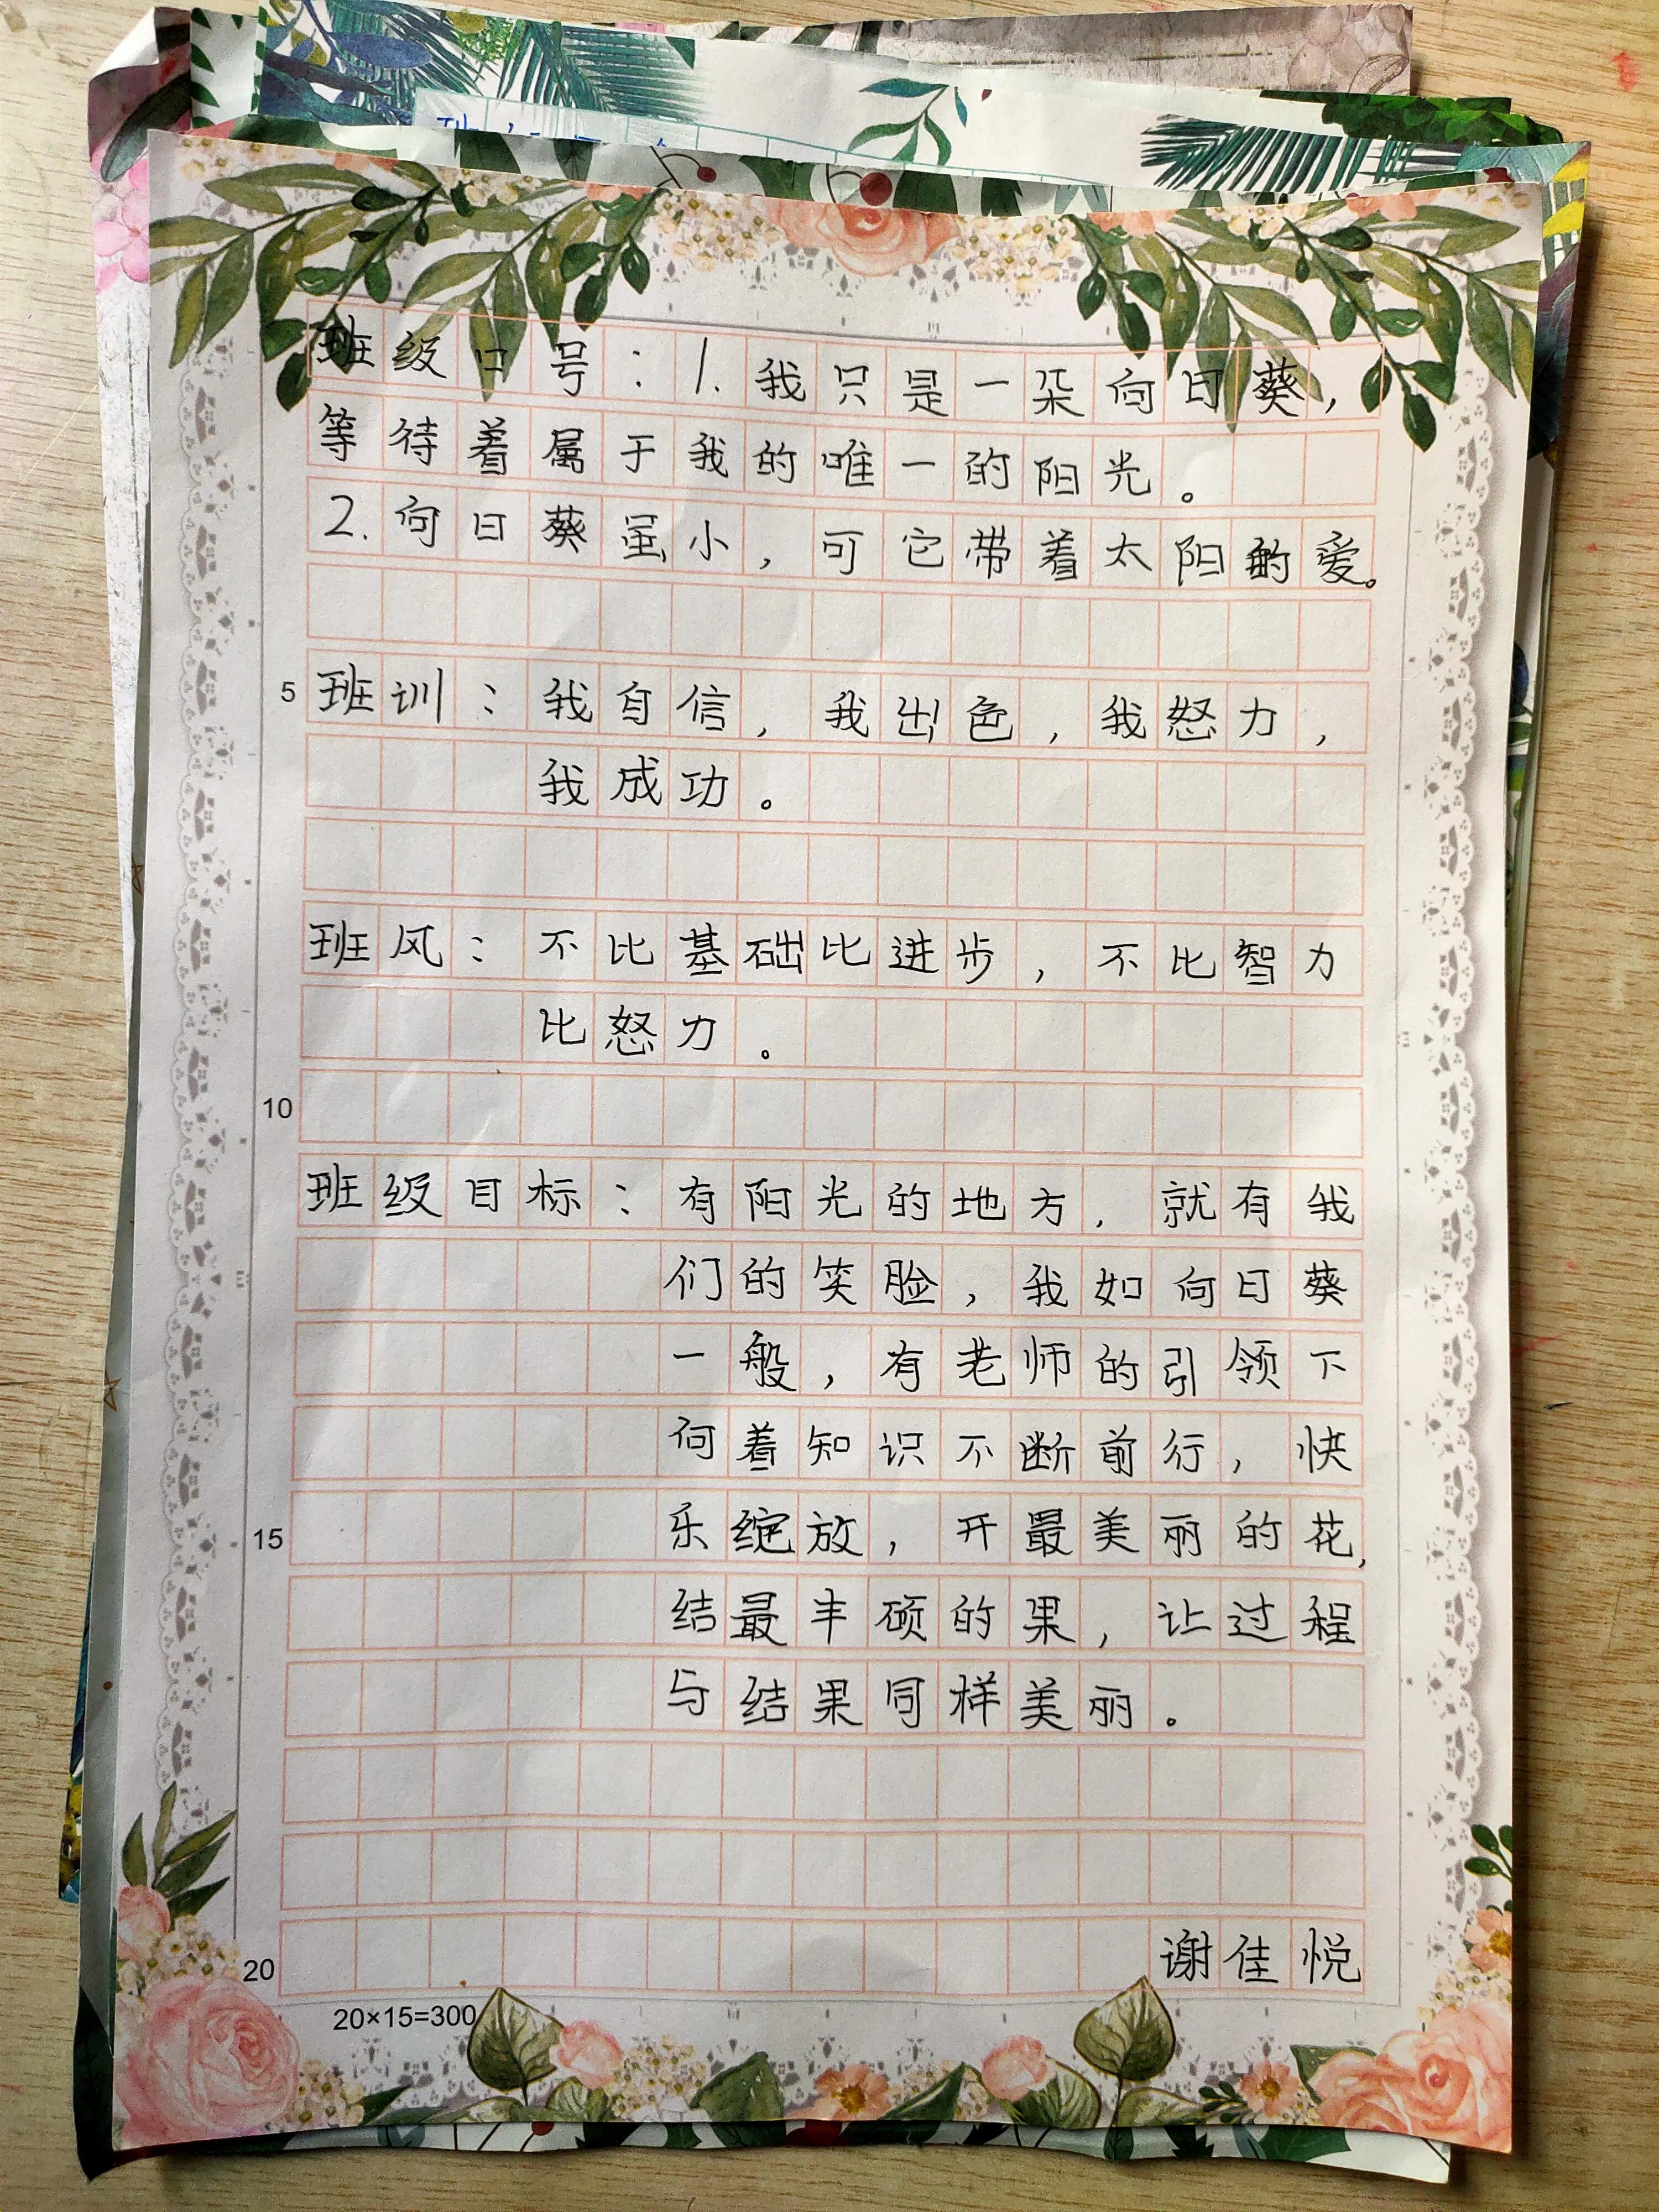 班级口号：1.我只是一朵向日葵，
等待着属于我的唯一的阳光。
2.向日葵虽小，可它带着太阳的爱。
5 班训：我自信，我出色，我怒力，
我成功。
班风：不比基础比进步，不比智力
比怒力。
10
班级目标：有阳光的地方，就有我
们的笑脸，我如向日葵
一般，有老师的引领下
向着知识不断前行，快
15 乐绽放，开最美丽的花，
结最丰硕的果，让过程
与结果同样美丽。
20 谢佳悦
20×15=300